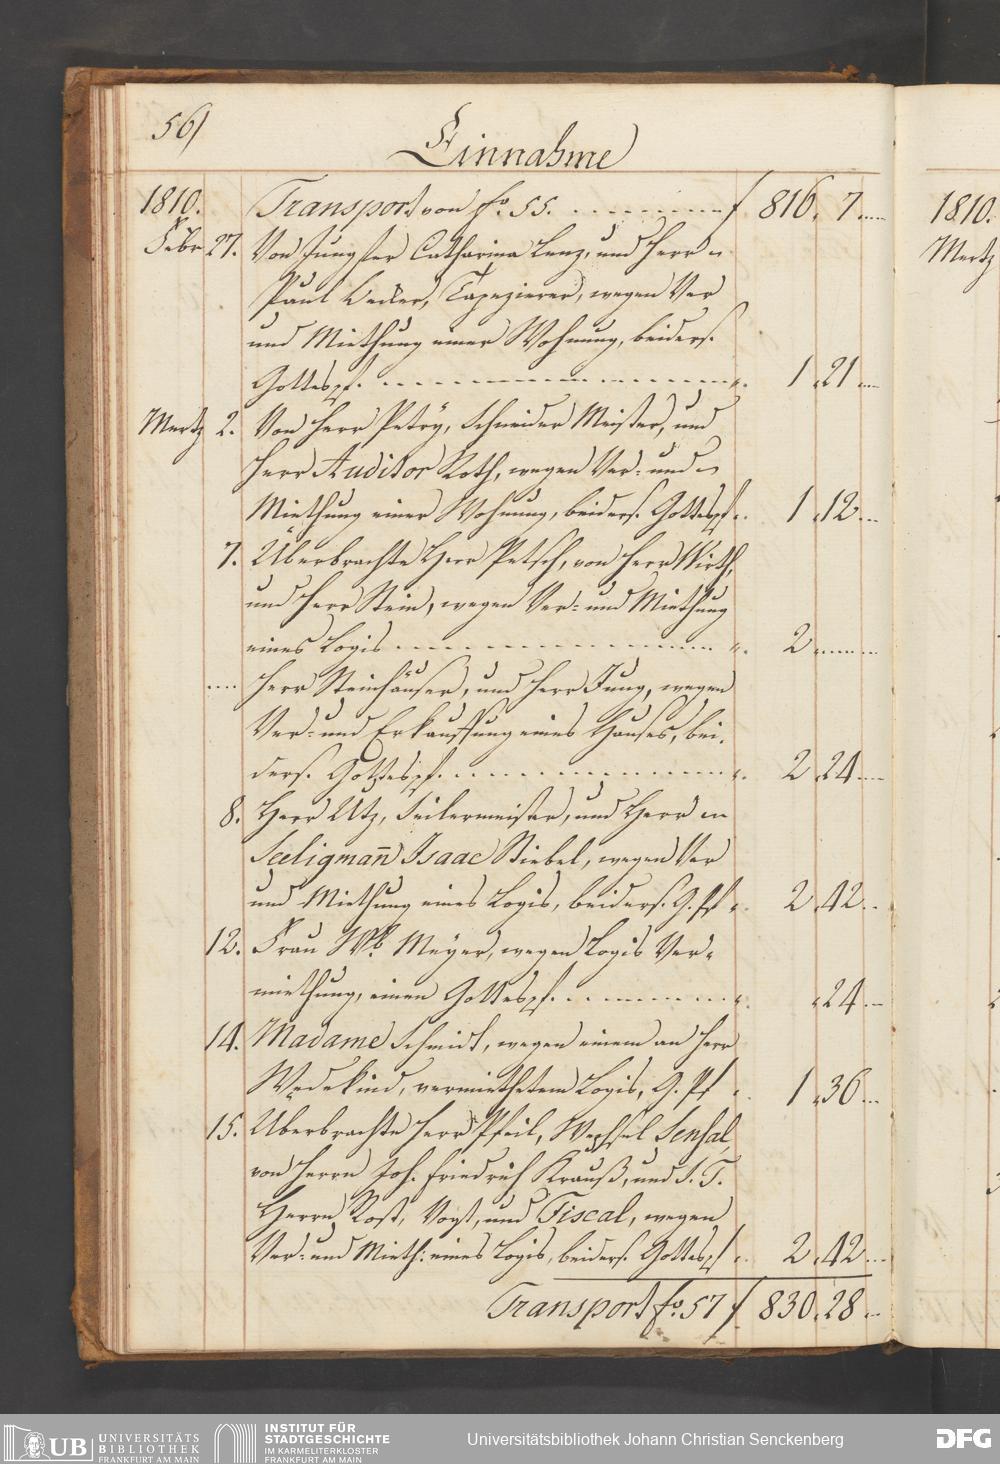 56)
Einnahme
1810. Transport von fo. 55. . . . . . . . . . . f 816. 7 . . . .
Febr 27. Von Jungfer Catharina Lenz, und Herr
Paul Decker, Tapezierer, wegen Ver
und Miethung einer Wohnung, beiders.
Gottespf. . . . . . . . . . . . . . . . . . . ". 1 . 21 . . . .
Mertz 2. Von Herr Petrÿ, Schneider Meister, und
Herr Auditor Roth, wegen Ver- und
Miethung einer Wohnung, beiders. Gottespf ". 1 . 12 . . .
7. Überbrachte Herr Petsch, von Herr Wirth,
und Herr Stein, wegen Ver- und Miethung
eines Logis . . . . . . . . . . . . . . . . . ". 2 . . . . . . .
. . . . Herr Steinhäuser, und Herr Jung, wegen
Ver- und Erkauffung eines Hauses, bei-
ders. Gottespf. . . . . . . . . . . . . . . . ". 2 . 24 . . . .
8. Herr Utz, Seilermeister, und Herr
Seeligmañ Isaac Stiebel, wegen Ver
und Miethung eines Logis, beiders. G. Pf ". 2 . 42 . .
12. Frau Wb. Meÿer, wegen Logis Ver-
miethung, einen Gottespf. . . . . . . . . . ". " 24 . . .
14. Madame Schmidt, wegen einem an Herr
Wedekind, vermiethetem Logis, G. Pf ". 1 . 36 . . .
15. Überbrachte Herr Pfeil, Wechsel Sensal,
von Herrn Joh. Friedrich Krauß, und S. T.
Herrn Rost, Vogt, und Fiscal, wegen
Ver- und Mieth: eines Logis, beiders. Gottespf ". 2 . 42 . . .
Transport fo. 57 f 830. 28 . .
1810.
Mertz
UB UNIVERSITÄTS
BIBLIOTHEK
FRANKFURT AM MAIN
INSTITUT FÜR
STADTGESCHICHTE
IM KARMELITERKLOSTER
FRANKFURT AM MAIN
Universitätsbibliothek Johann Christian Senckenberg
DFG